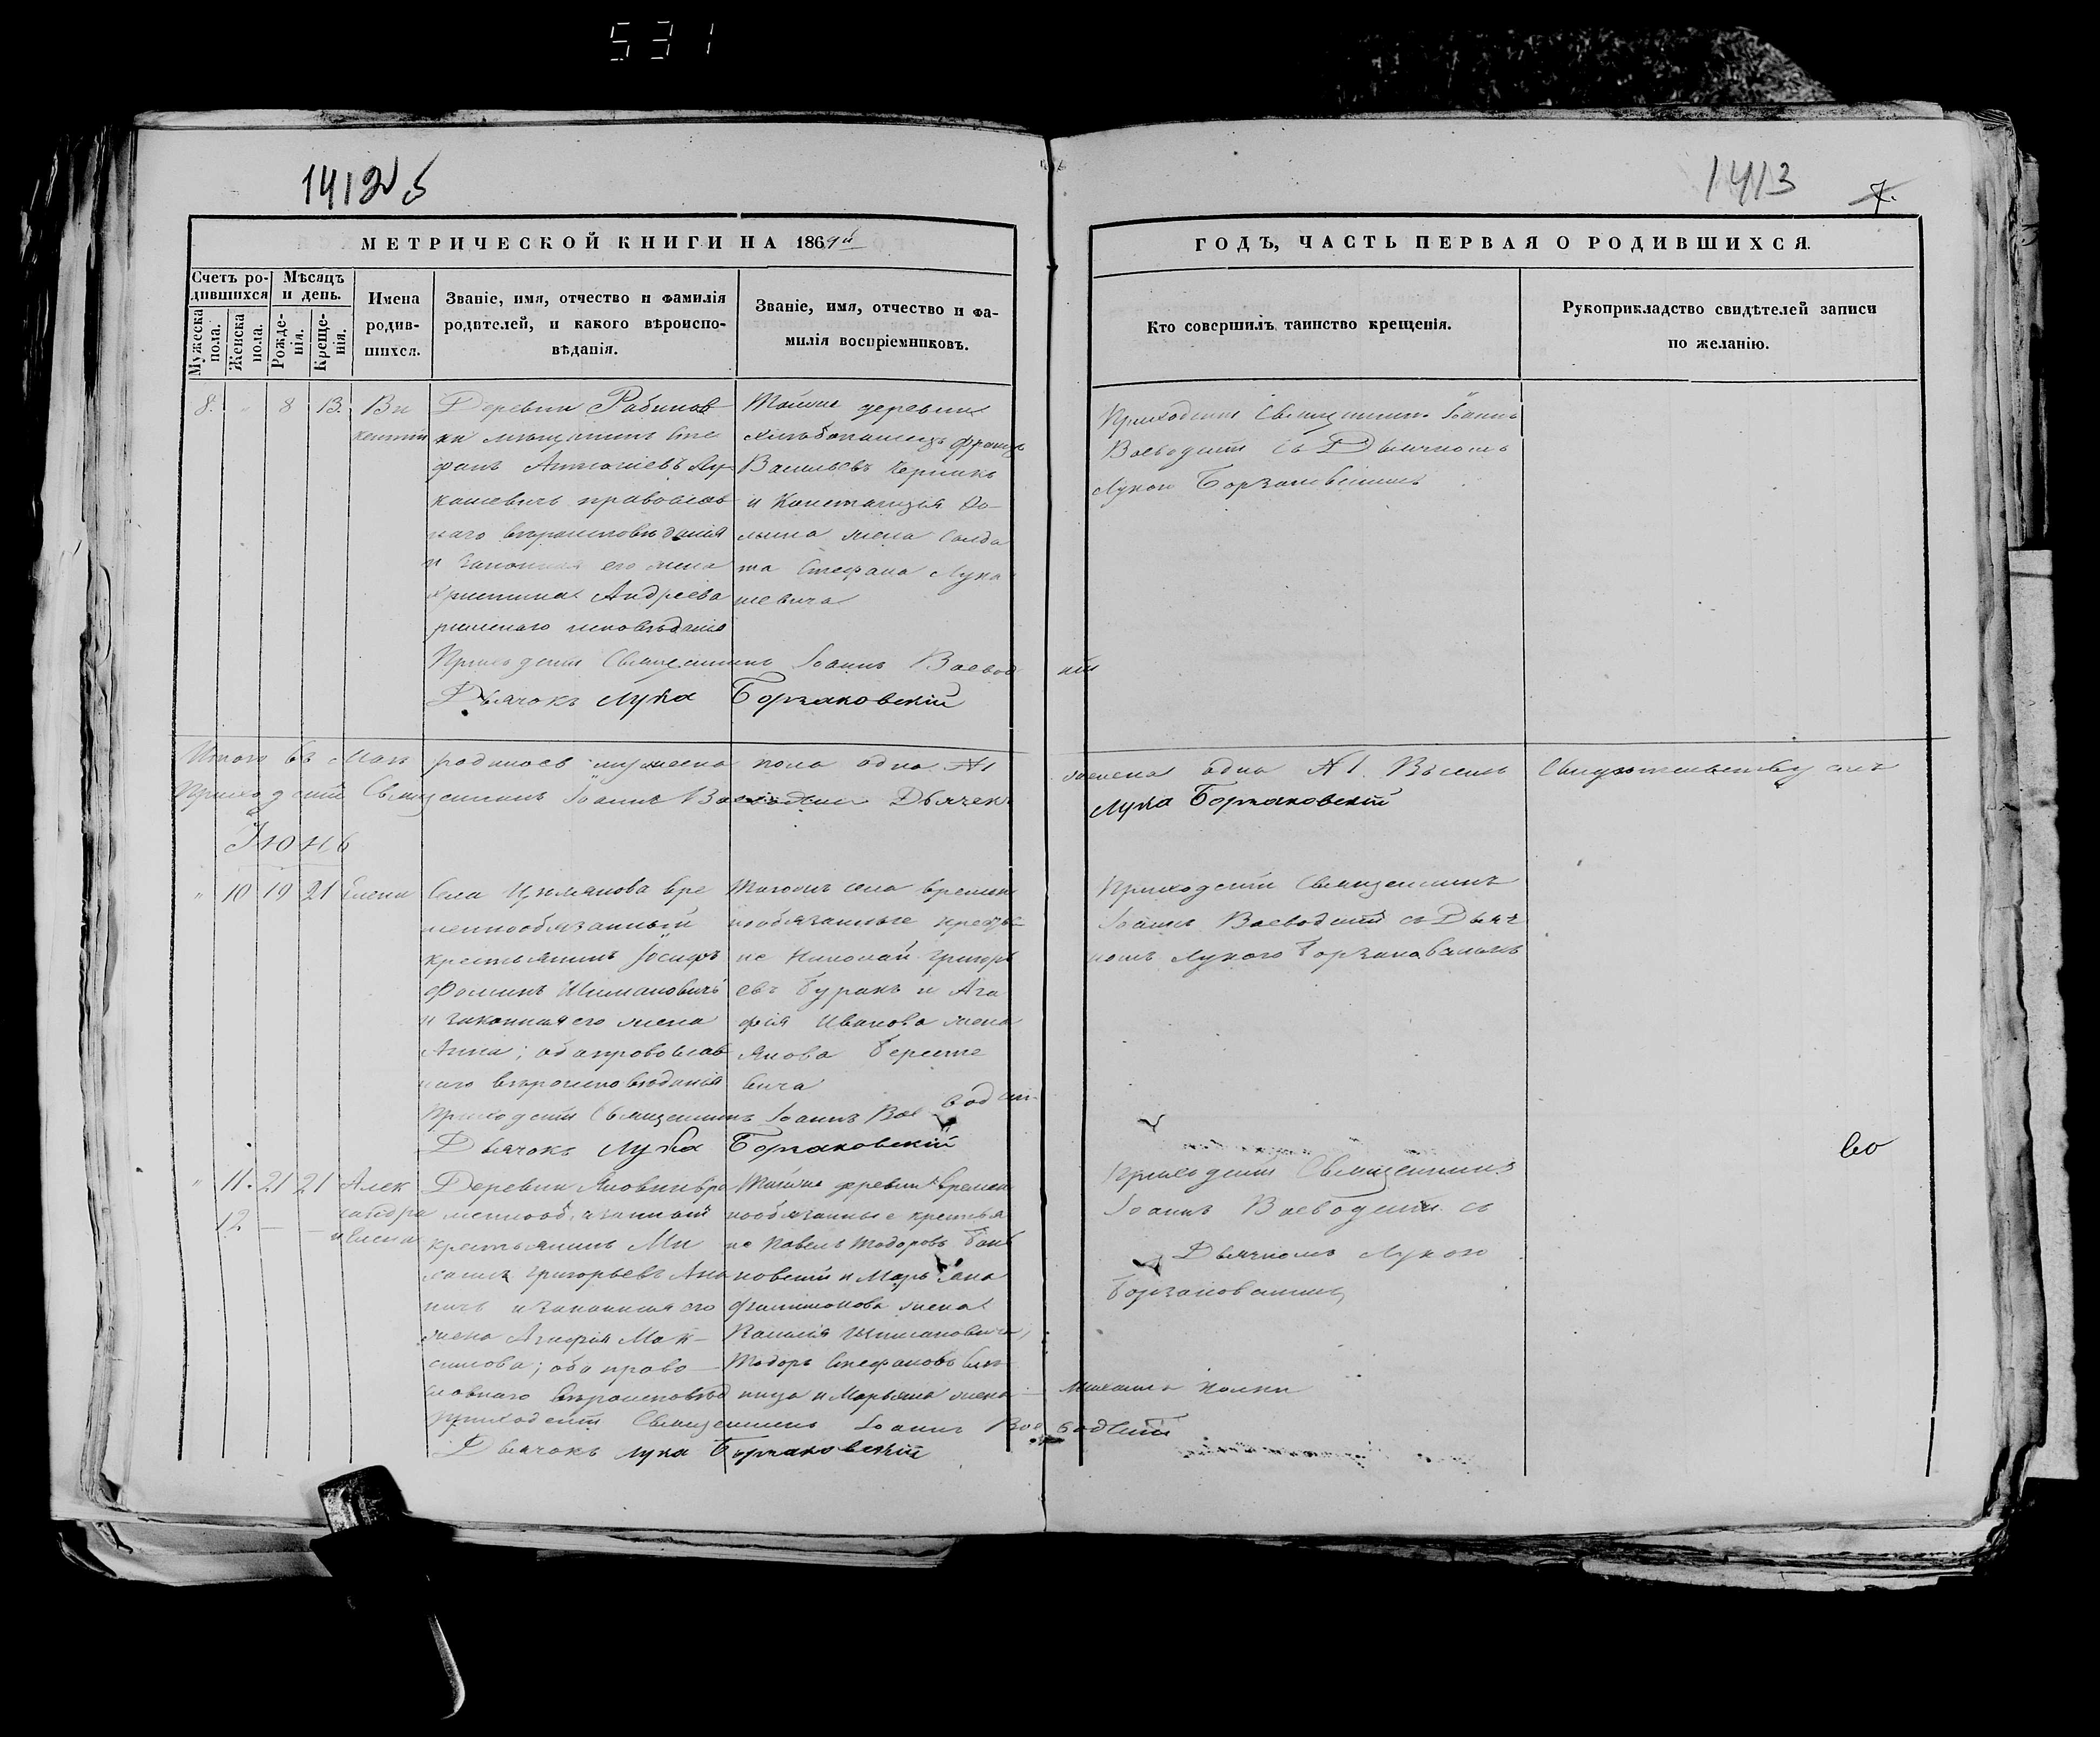 531
1412 об
1413
7.
МЕТРИЧЕСКОЙ КНИГИ НА 1869й
ГОДЪ, ЧАСТЬ ПЕРВАЯ О РОДИВШИХСЯ.
Счетъ родившихся
Мужеска пола.
Женска пола.
Мѣсяцъ и день.
Рожденія.
Крещенія.
Имена родившихся.
Званіе, имя, отчество и фамилія
родителей, и какого вѣроиспо-
вѣданія.
Званіе, имя, отчество и фа-
милія воспріемниковъ.
Кто совершилъ таинство крещенія.
Рукоприкладство свидѣтелей записи
по желанію.
8. " 8 13.
Ви
кентій
Деревни Рабинов
ки мѣщанинъ Сте
фанъ Антоніевъ Лу
кашевичъ православ
наго вѣроисповѣданія
и законная его жена
Христина Андреева
римскаго исповѣданія
Тойже деревни
хлѣбопашецъ Францъ
Васильевъ
и Констанція
жена Солда
та Стефана Лука
шевича
Приходскій Священникъ Іоаннъ
Воеводскій съ Дьячкомъ
Лукою Борзаковскимъ
Приходскій Священникъ Іоаннъ Воеводскій
Дьячокъ Лука Борзаковскій
Итого въ Маѣ родилось мужеска пола одно №1
женска одна №1. Въ семъ Свидѣтельствуемъ
Приходскій Священникъ Іоаннъ Воеводскій Дьячекъ
Лука Борзаковскій
Іюнь
" 10 19 21 Елена
Села вре
меннообязанный
крестьянинъ Іосифъ
Фоминъ Шимановичъ
и законная его жена
Анна; оба православ
наго вѣроисповѣданія
Тогожъ села времен
нообязанные крестья
не Николай Григорь
евъ Буракъ и Ага
фія Иванова жена
Якова
вича
Приходскій Священникъ
Іоаннъ Воеводскій съ Дьяч
комъ Лукою Борзаковскимъ
Приходскій Священникъ Іоаннъ Воеводскій
Дьячокъ Лука Борзаковскій
" 11. 21 21
12 — —
Алек
сандра
и Елена
Деревни вре
меннообязанный
крестьянинъ Ми
хаилъ Григорьевъ
и законная его
жена Агафія Мак-
симова; оба право-
славнаго вѣроисповѣд
Тойже деревни времен
нообязанные крестья
не Павелъ Тодоровъ
и Марьяна
Филимонова жена
Шимановича,
Тодоръ Стефановъ
и Марьяна жена
Михаила
Приходскій Священникъ
Іоаннъ Воеводскій съ
Дьячкомъ Лукою
Борзаковскимъ
Приходскій Священникъ Іоаннъ Воеводскій
Дьячокъ Лука Борзаковскій